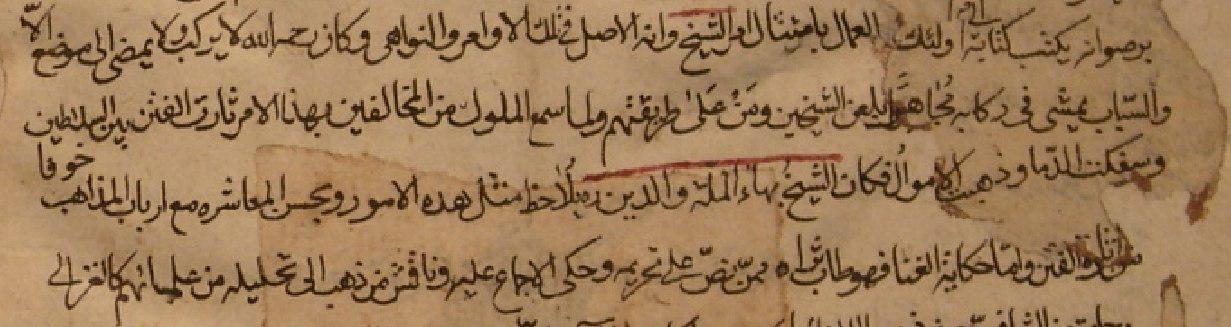 برضوانه يكتب كتابة اولئك العمال بامتثال امر الشيخ وانه الاصل في تلك الاوامر والنواهي وكان رحمه الله لا يركب ولا يمضى الى موضع الا
والسّباب يمشى في ركابه مُجاهرًا بلعن الشيخين ومَنْ عَلى طريقتهم ولما سمع الملوك من المخالفين بهذا الامر ثارت الفتن بين السلاطين
وسفكت الدّما وذهبت الاموال فكان الشيخُ بهاء الملة والدين ره يُلاحظ مثل هذه الامور ويحسن المعاشره مع ارباب المذاهب خوفا
من اثارة الفتن وامّا حكاية الغنا فهو طاب ثراه ممن نصّ على تحريمه وحكى الاجماع عليه وناقش من ذهب الى تحليله من علمائهم كالغزالي